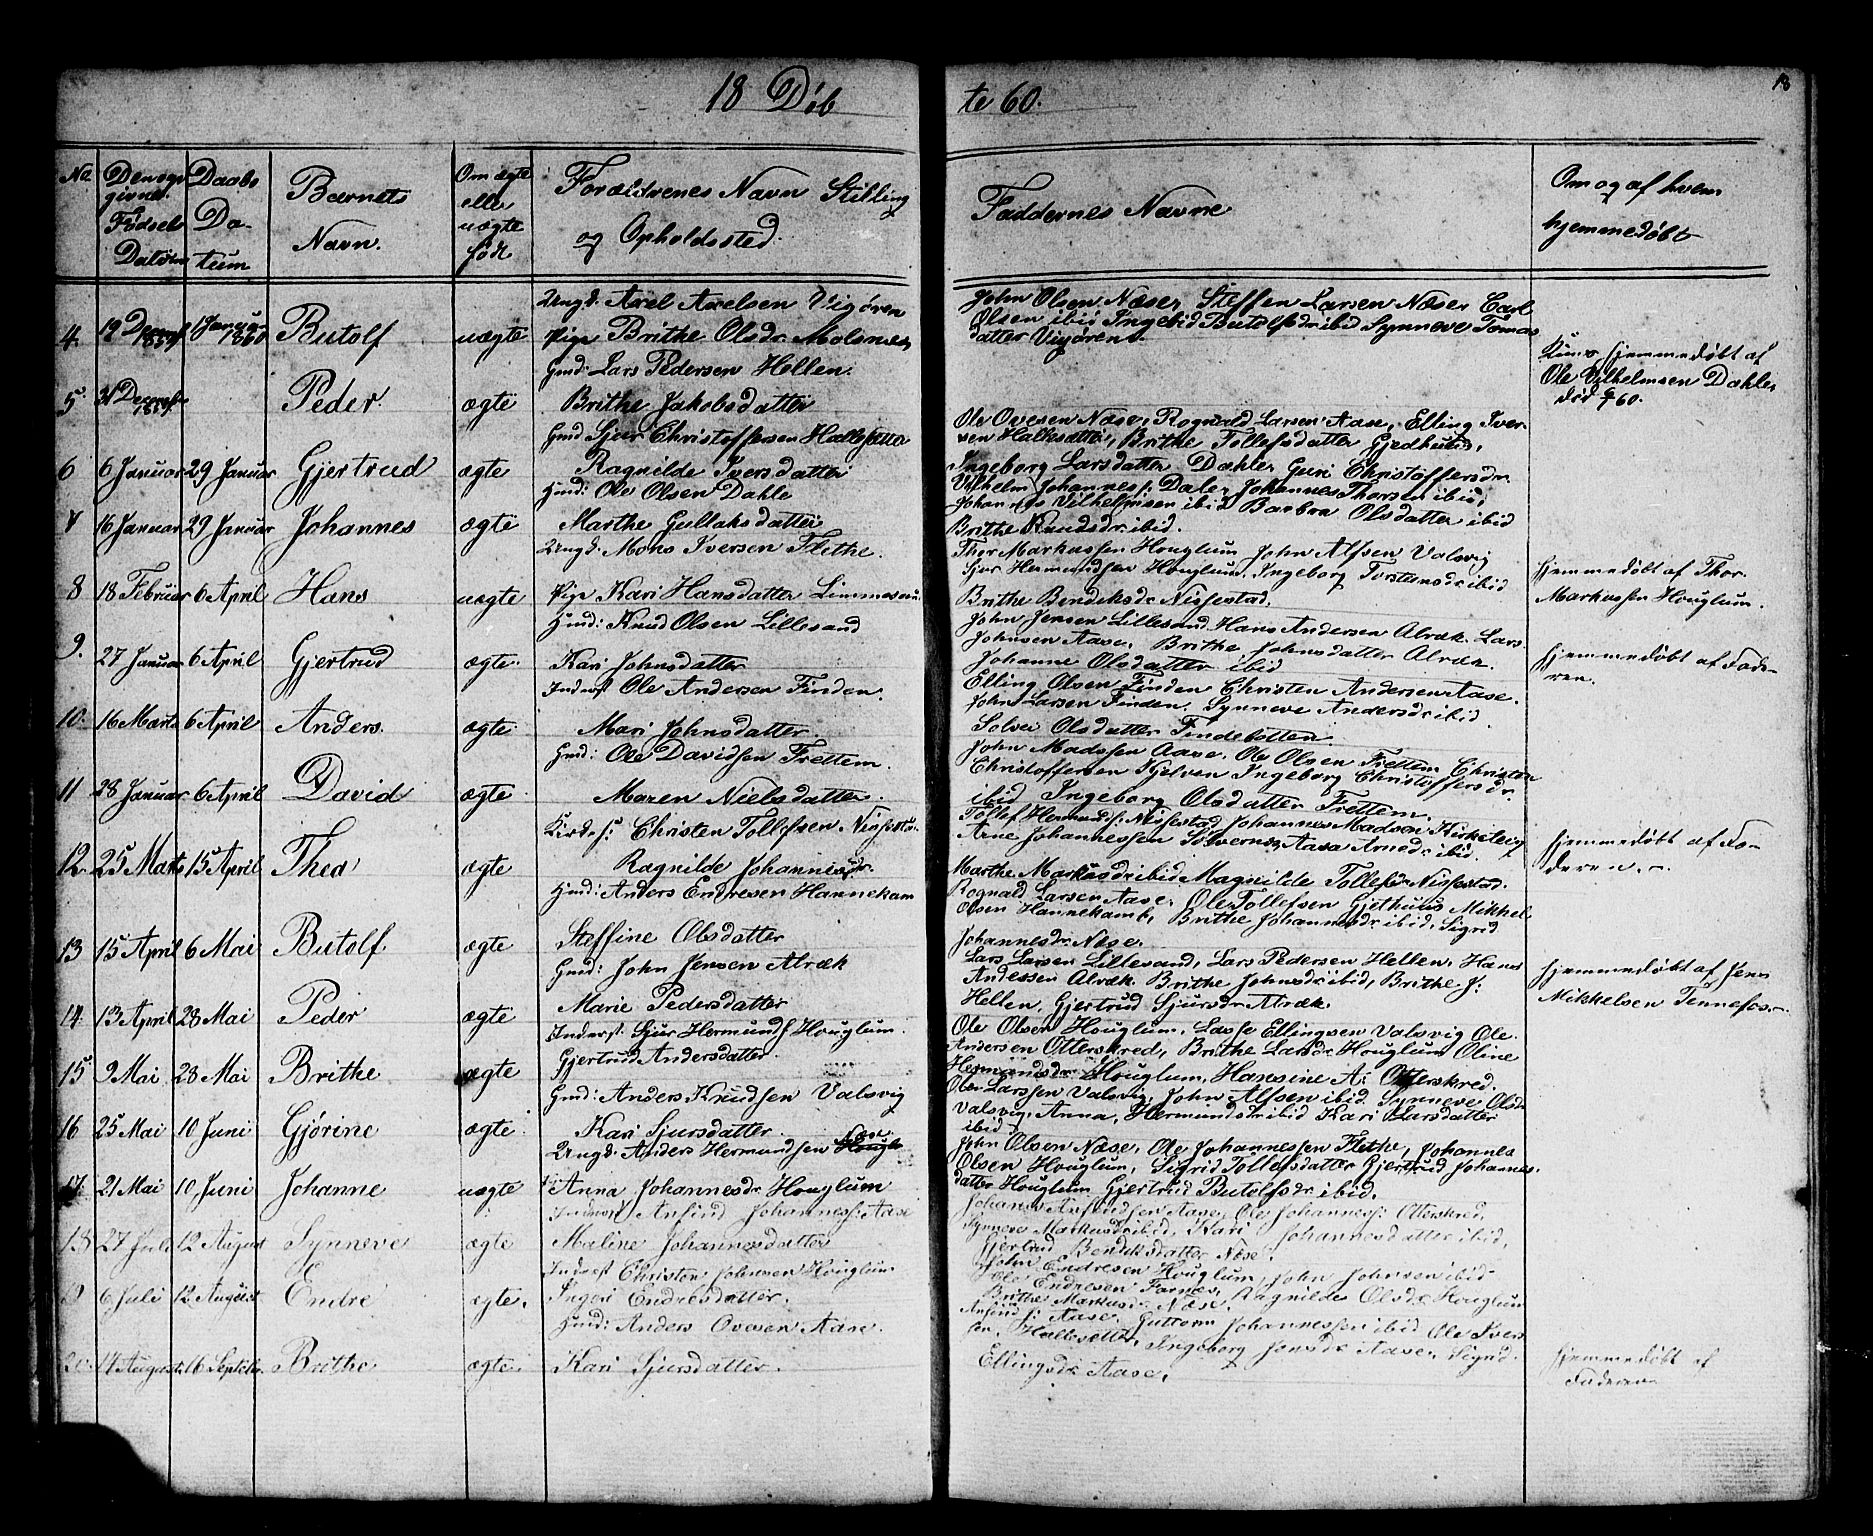 18 Døb
te 60.
18
No
Den op-
givne
Fødsels
Datum
Daabs
Da-
tum
Barnets
Navn.
Om ægte
eller
uægte
født
Forældrenes Navn Stilling
og Opholdssted.
Faddernes Navne
Om og af hvem
hjemmedøbt
Ungk: Axel Axelsen Vigøren
4. 19 Decemb 1859 1 Januar 1860 Butolf uægte Pige Brithe Olsdr Molsnes
John Olsen Næse, Steffen Larsen Næse, Carl
Olsen ibid Ingebid Butolfsdr ibid Synneve Tomas
datter Vigøren.
Gmd: Lars Pedersen Hellen.
5. 31 Decemb 1859. Peder. ægte Brithe Jakobsdatter
Kun hjemmedøbt af
Ole Vilhelmsen Dahle
død 60.
Gmd Sjur Christoffersen Hallesætte
6 6 Januar 29 Januar Gjertrud ægte Ragnilde Iversdatter
Ole Ovesen Næse, Rognald Larsen Aase, Elling Iver-
sen Hallesætte, Brithe Tollefsdatter Gjedhus,
Ingeborg Larsdatter Dahle, Guri Christoffersdr
Hmd: Ole Olsen Dahle
7 16 Januar 29 Januar Johannes ægte Marthe Gullaksdatter
Vilhelm Johanness: Dale, Johannes Thorsen ibid,
Johannes Vilhelmsen ibid Barbra Olsdatter ibid
Brithe Knudsdr ibid.
Ungk: Mons Iversen Flethe.
8 18 Februar 6 April Hans uægte Pige Kari Hansdatter
Thor Markussen Houglum, John Alfsen Valsvig
Sjur Hermundsen Houglum, Ingeborg Torstensdr ibid
Brithe Bendiksdr Nissestad.
hjemmedøbt af Thor
Markussen Houglum.
Hmd: Knud Olsen Lillesand
9. 27 Januar 6 April Gjertrud ægte. Kari Johnsdatter
John Jensen Lillesand, Hans Andersen Alræk, Lars
Johnsen Aase, Brithe Johnsdatter Alræk.
Johanne Olsdatter ibid
hjemmedøbt af Fade-
ren.
Inderst Ole Andersen Finden.
10. 16 Marts 6 April Anders. ægte Mari Johnsdatter.
Elling Olsen Finden, Christen Andersen Aase.
John Larsen Finden, Synneve Andersdr ibid
Solvei Olsdatter Findebotten.
Gmd: Ole Davidsen Frettem.
11 28 Januar 6 April David ægte Maren Nielsdatter.
John Madssen Aase. Ole Olsen Frettem Christen
Christoffersen Njelven Ingeborg Christoffersdr.
ibid Ingeborg Olsdatter Frettem.
Kirkes: Christen Tollefsen Nissestad
12. 25 Marts 15 April Thea ægte Ragnilde Johannisdr.
Tollef Hermunds: Nissestad, Johannes Madsen Kirkeleig
Arne Johannessen Solvorn, Aasa Arnedr ibid.
Marthe Markusdr ibid Magnilde Tollefsdr Nissestad.
hjemmedøbt af Fa-
deren. -
Hmd: Anders Endresen Hannekam
13 15 April 6 Mai Butolf. ægte Steffine Olsdatter
Rognald Larsen Aase, Ole Tollefsen Gjethuus Mikkel
Olsen Hannekamb, Brithe Johannesdr ibid, Sigrid
Johannesdr Næse.
Gmd: John Jensen Alræk
14. 13 April 28 Mai Peder ægte Marie Pedersdatter
Lars Larsen Lillesand, Lars Pedersen Hellen, Hans
Anderssen Alræk Brithe Johnsdr ibid, Brithe J:
Hellen, Gjertrud Sjursdr Alræk.
hjemmedøbt af Jens
Mikkelsen Tennefos.-
Inderst: Sjur Hermunds Houglum.
15 9 Mai 28 Mai Brithe ægte Gjertrud Andersdatter.
Ole Olsen Houglum, Lasse Ellingsen Valsvig Ole
Andersen Otterskred, Brithe Larsdr Houglum Oline
Hermundsdr Houglum, Hansine A: Otterskred.
Gmd: Anders Knudsen Valsvig
16 25 Mai 10 Juni Gjørine ægte Kari Sjursdatter.
Ole Larssen Valsvig, John Alfsen ibid Synneve Olsdr
Valsvig, Anna Hermundsdr ibid Kari Larsdatter
ibid
Ungk: Anders Hermundsen Næse.
17. 21 Mai 10 Juni Johanne uægte Anna Johannesdr Houglum
John Olsen Næse, Ole Johannessen Flethe, Johannes
Olsen Houglum, Sigrid Tollefsdatter Gjertrud Johannes-
datter Houglum Gjertrud Butolfsdr ibid.
Inderst Anfind Johanness: Aase
18 27 Juli 12 August Synneve ægte Maline Johannesdatter
Johannes Anfindsen Aase, Ole Johanness: Otterskred,
Synneve Markusdr ibid, Kari Johannesdatter ibid,
Gjertrud Bendiksdatter Næse.
Inderst Christen Johnsen Houglum
9 6 Juli 12 August Endre ægte. Ingeri Endresdatter.
John Endresen Houglum, John Johnsen ibid
Ole Endresen Farnes, Ragnilde Olsdr Houglum
Brithe Markusdr Næse.
Hmd: Anders Ovesen Aase.
20. 14 August 16 Septbr. Brithe ægte Kari Sjursdatter.
Anfind J: Aase, Guttorm Johannessen ibid Ole Ivers
sen Hallesætte, Ingeborg Jonsdr Aase, Sigrid
Ellingsdr Aase,
hjemmedøbt af
Faderen